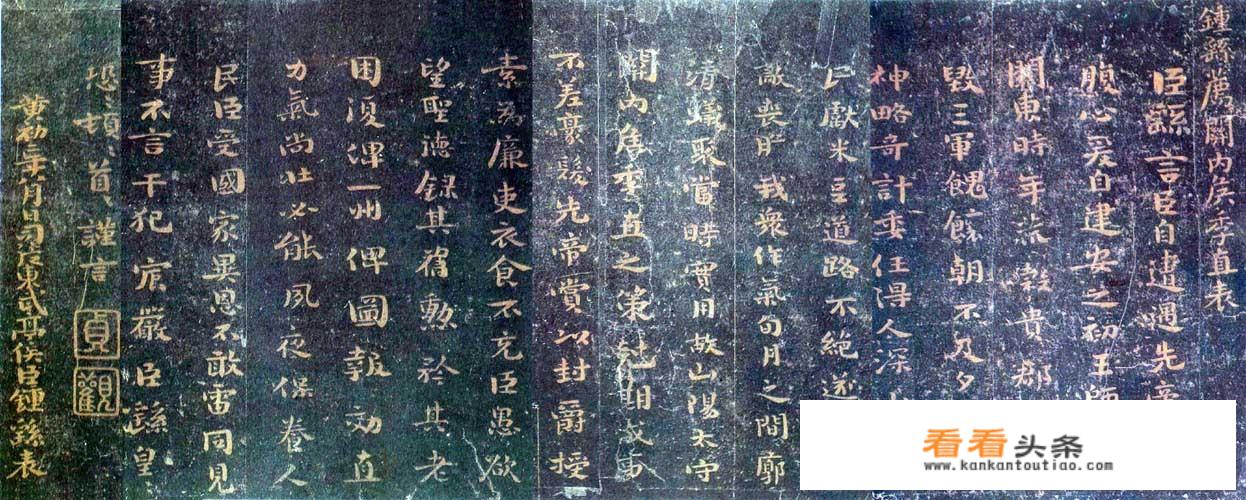 鍾繇薦關內侯季直表
臣繇言臣自遭遇先帝
腹心爰自建安之初王師
關東時年荒穀貴郡
毀三軍餽饟朝不及夕
神略奇計委任得人深
民獻米豆道路不絕遂
敵喪膽我衆作氣旬月之間廓
清蟻聚當時實用故山陽太守
關內侯季直之策尅期成事
不差豪髮先帝賞以封爵授
素為廉吏衣食不充臣愚欲
望聖德錄其舊勳矜其老
困復俾一州俾圖報效直
力氣尚壯必能夙夜保養人
民臣受國家異恩不敢雷同見
事不言干犯宸嚴臣繇皇〻
恐〻頓〻首〻謹言
貞觀
黃初二年八月日司徒東武亭侯臣鍾繇表
看看头条
www.kankantoutiao.com